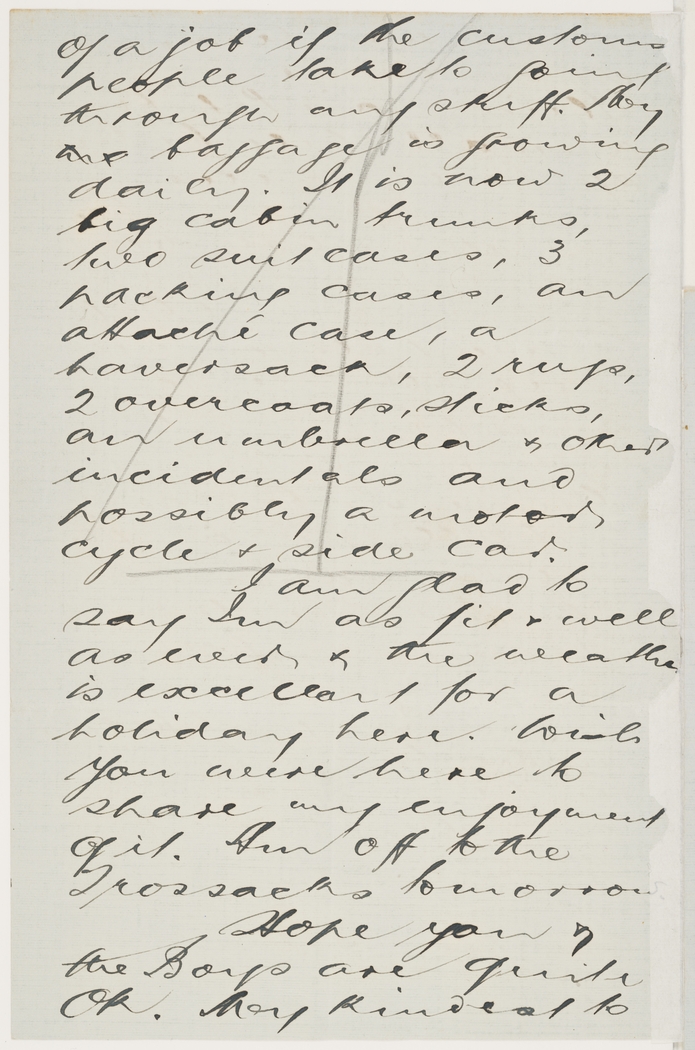 of a job if the customs
people take to going
through any stuff. My
baggage is growing
daily. It is now 2
big cabin trunks,
two suit cases, 3
packing cases, an
attaché case, a
haversack, 2 rugs,
2 overcoats, sticks,
an umbrella & other
incidentals and
possibly a motor
cycle & side car.
I am glad to
say I'm as fit & well
as ever & the weather
is excellent for a
holiday here. Wish
you were here to
share my enjoyment
of it. I'm off to the
Trossacks tomorrow
Hope you &
the Boys are quite
Ok. My kindest to